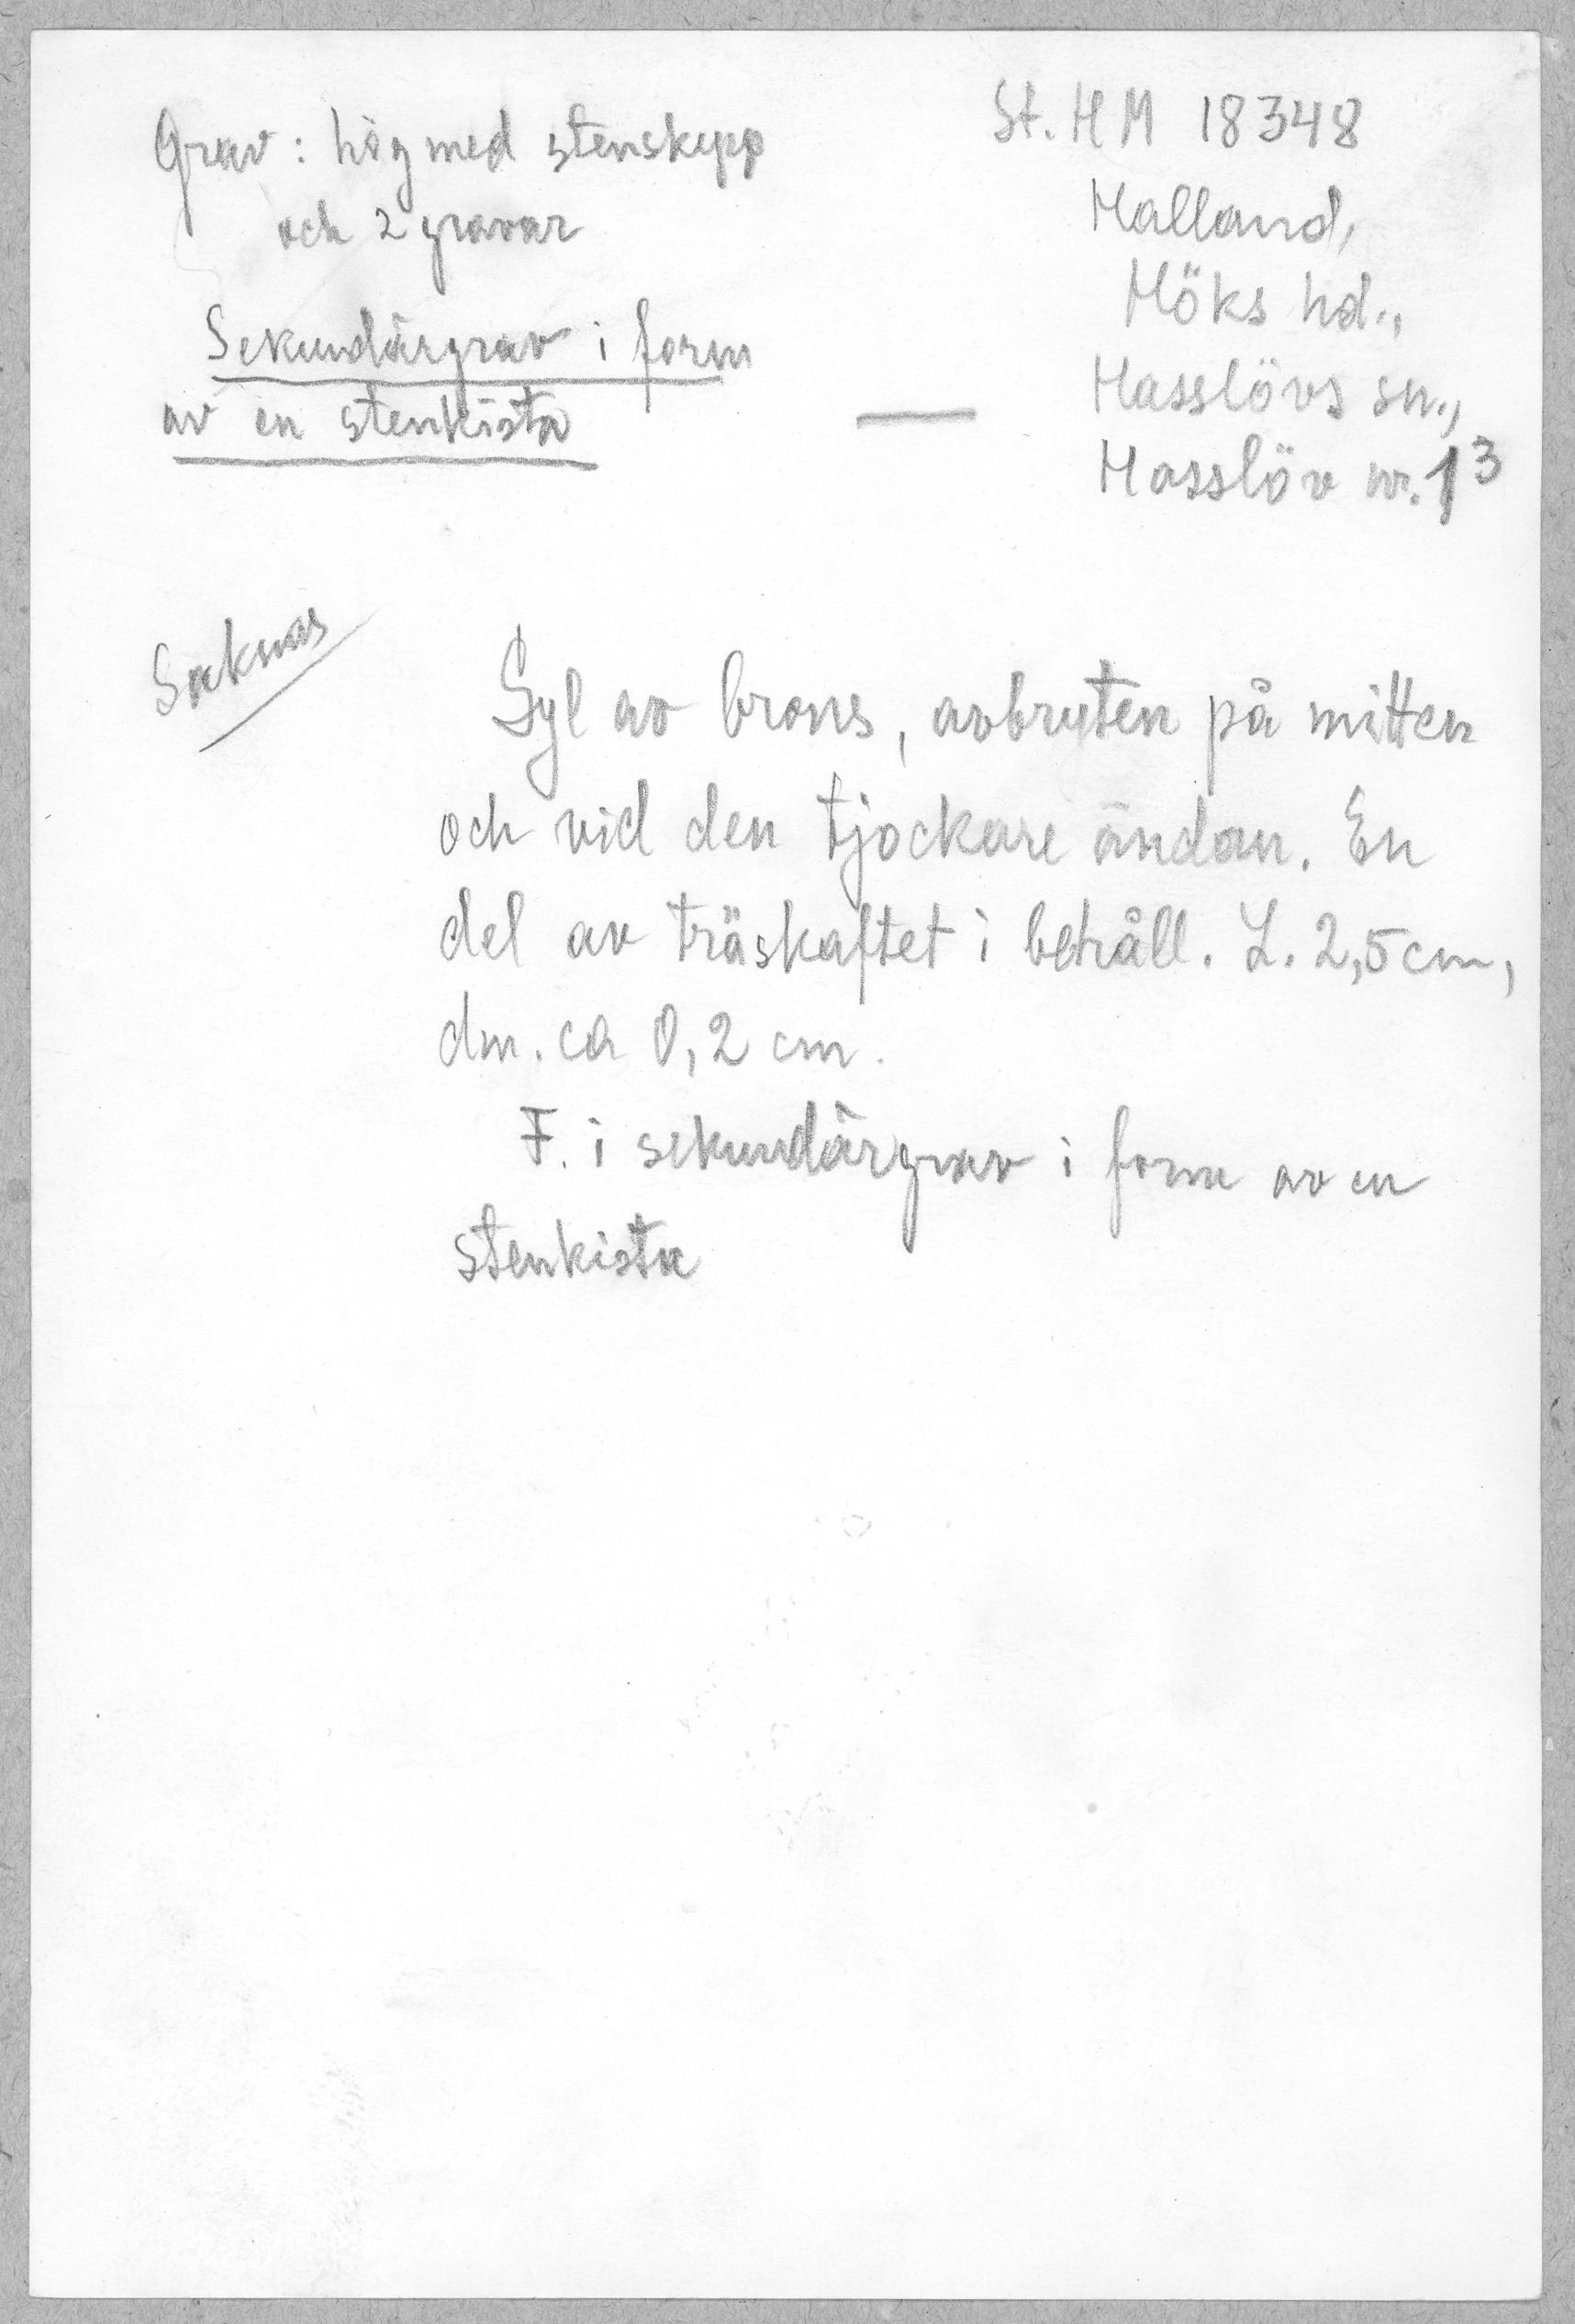 Grav: hög med stenskepp
och 2 gravar
Sekundärgrav i form
av en stenkista
St. H M 18348
Halland,
Höks hd.,
Hasslövs sn.,
Hasslöv nr. 13
Saknas
Syl av brons, avbruten på mitten
och vid den tjockare ändan. En
del av träskaftet i behåll. L. 2,5 cm,
dm. ca 0,2 cm.
F. i sekundärgrav i form av en
stenkista